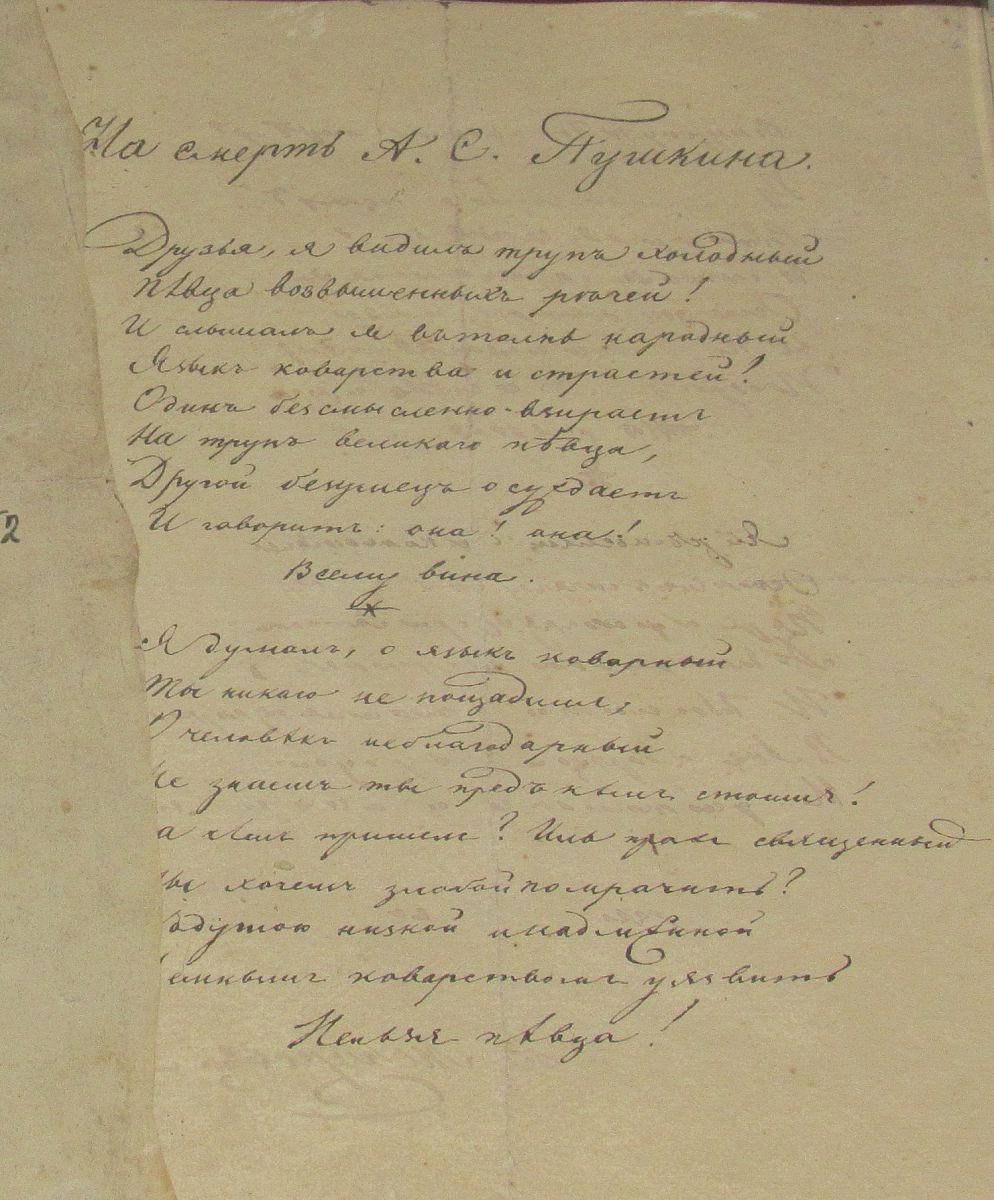 На смерть А. С. Пушкина.
Друзья, я видѣлъ трупъ холодный
Пѣвца возвышенныхъ рѣчей!
И слышалъ я въ толпѣ народный
Языкъ коварства и страстей!
Одинъ безмысленно взираетъ
На трупъ великаго пѣвца,
Другой безумецъ осуждаетъ
И говоритъ: она! она!
Всему вина.
Я думалъ, о языкъ коварный
Ты никаго не пощадилъ,
О человѣкъ неблагодарный
Не знаешь ты предъ кѣмъ стоишь!
пришелъ? Иль прахъ священный
ты хочешь злобой помрачить?
душою низкой и надмѣнной
коварствомъ уязвить
Нельзя пѣвца!
2